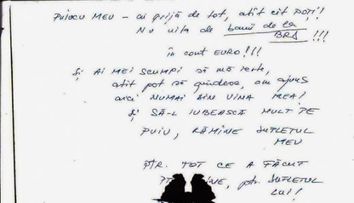 PUIOCU MEU – ai grijă de tot, atît cît POȚI!
NU uita de banii de la
BRD !!!
în cont EURO!!!
Și AI MEI SCUMPI să mă ierte,
atît pot să gîndesc, am ajuns
aici NUMAI DIN VINA MEA!
Și SĂ-L IUBEASCĂ MULT PE
PUIU, RĂMÎNE SUFLETUL
MEU
PTR. TOT CE A FĂCUT
PT, ptr. SUFLETUL
LUI!